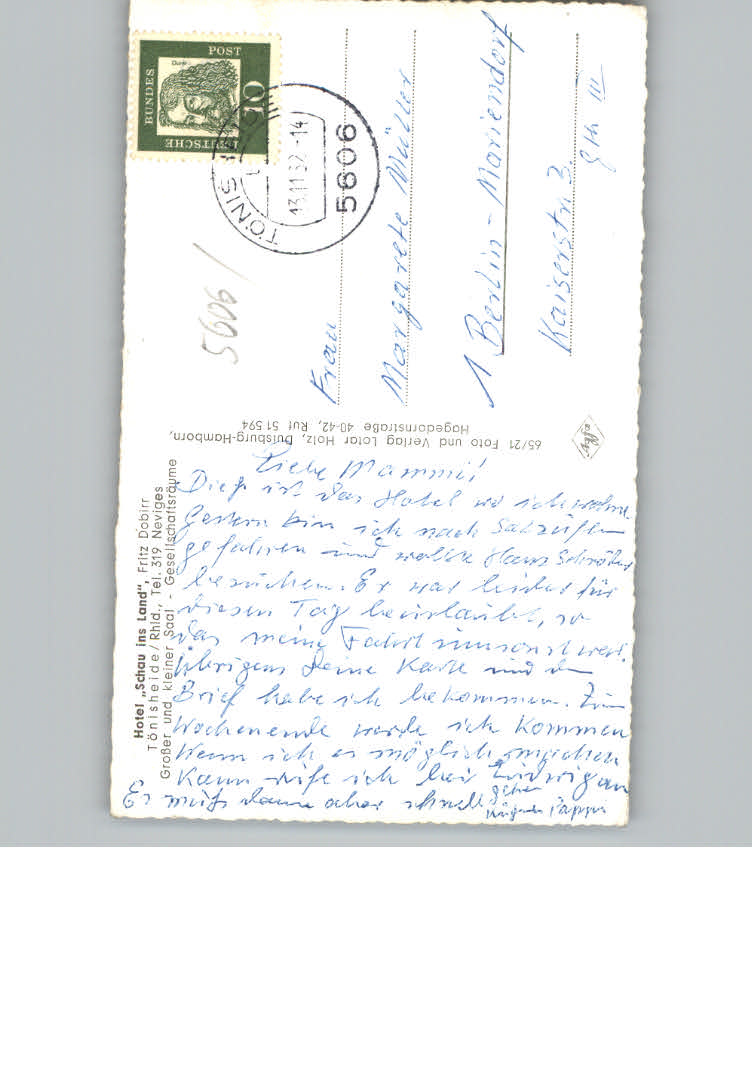 DEUTSCHE
BUNDES
POST
10
Dürer
TÖNISHEIDE
13.11.62.-14
5606
5606 /
Frau
Margarete Müller
1 Berlin - Mariendorf
Kaiserstr. 3.
Gth III
65/21 Foto und Verlag Lotar Holz, Duisburg-Hamborn,
Hagedornstraße 40-42, Ruf 51 594
agfa
Hotel „Schau ins Land", Fritz Dobirr
Tönisheide / Rhld., Tel. 319 Neviges
Großer und kleiner Saal - Gesellschaftsräume
Liebe Mammi!
Dieß ist das Hotel wo ich wohne
Gestern bin ich nach Salzuflen
gefahren und wollte Hans Schröder
besuchen. Er war leider für
diesen Tag beurlaubt, so
das meine Fahrt umsonst war.
Übrigens Deine Karte und den
Brief habe ich bekommen. Zum
Wochenende werde ich kommen
Wenn ich es möglich machen
kann rufe ich bei Ludwig an
Er muß dann aber schnell gehen
Pappi